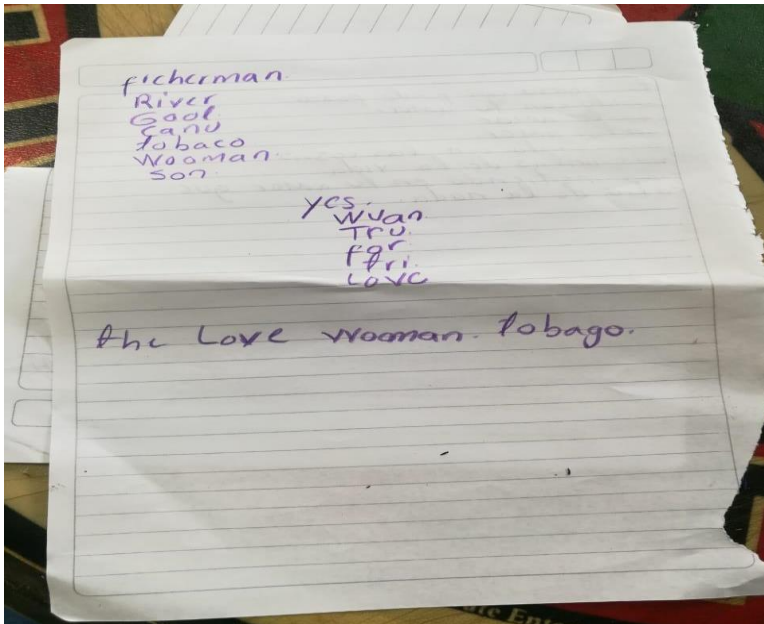 ficherman.
River
Gool
canu
tobaco
Wooman.
son
yes.
Wuan
Tru.
For
fri.
Love
the Love Wooman. tobago.